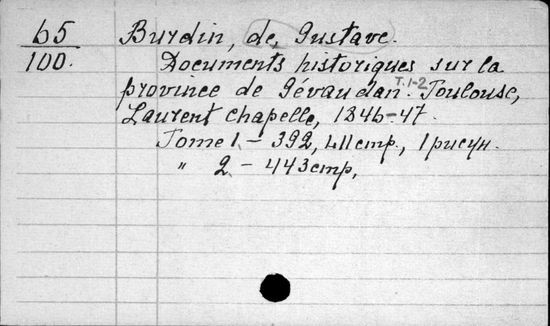 65 Burdin, de, Gustave.
100. Documents historiques sur la
province de Gévaudan. T. 1-2 Toulouse,
Laurent Chapelle, 1846-47.
Tome 1 - 392, LII стр., 1 рисун.
" 2 - 443 стр.